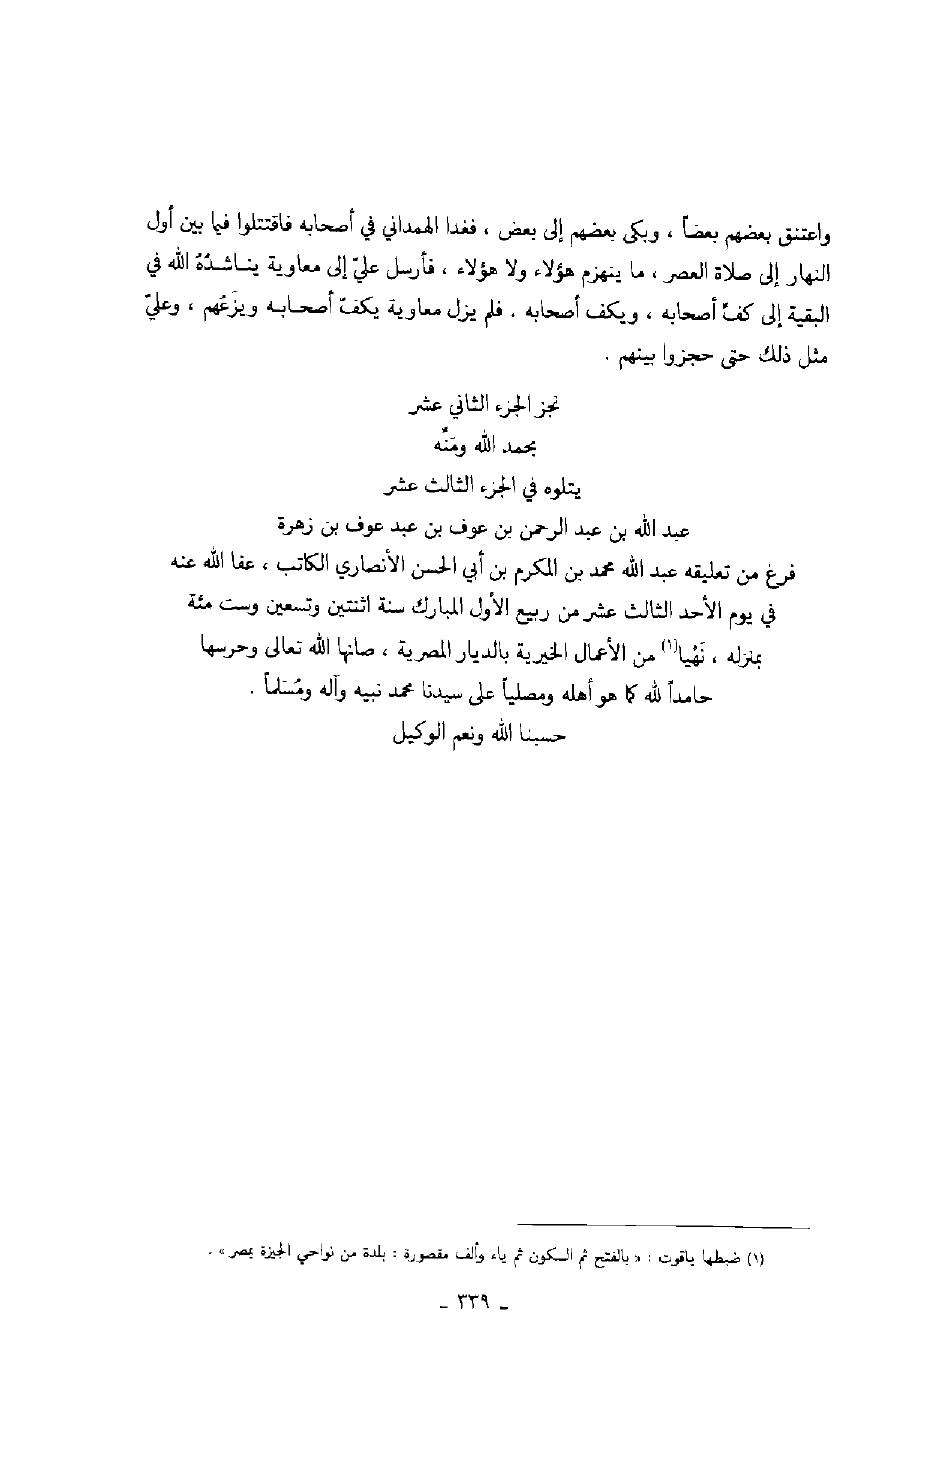 واعتنق بعضهم بعضاً ، وبكى بعضهم إلى بعض ، فغدا الهمداني في أصحابه فاقتتلوا فيما بين أول
النهار إلى صلاة العصر ، ما ينهزم هؤلاء ولا هؤلاء ، فأرسل عليّ إلى معاوية يناشدُهُ الله في
البقية إلى كفّ أصحابه ، ويكف أصحابه . فلم يزل معاوية يكفّ أصحابه ويزَعُهم ، وعليّ
مثل ذلك حتى حجزوا بينهم .
نجز الجزء الثاني عشر
بحمد الله ومَنِّه
يتلوه في الجزء الثالث عشر
عبد الله بن عبد الرحمن بن عوف بن عبد عوف بن زهرة
فرغ من تعليقه عبد الله محمد بن المكرم بن أبي الحسن الأنصاري الكاتب ، عفا الله عنه
في يوم الأحد الثالث عشر من ربيع الأول المبارك سنة اثنتين وتسعين وست مئة
بمنزله ، نَهْيا(١) من الأعمال الخيرية بالديار المصرية ، صانها الله تعالى وحرسها
حامداً لله كما هو أهله ومصلياً على سيدنا محمد نبيه وآله ومُسَلماً .
حسبنا الله ونعم الوكيل
(١) ضبطها ياقوت : « بالفتح ثم السكون ثم ياء وألف مقصورة : بلدة من نواحي الجيزة بمصر » .
ـ ٣٣٩ ـ